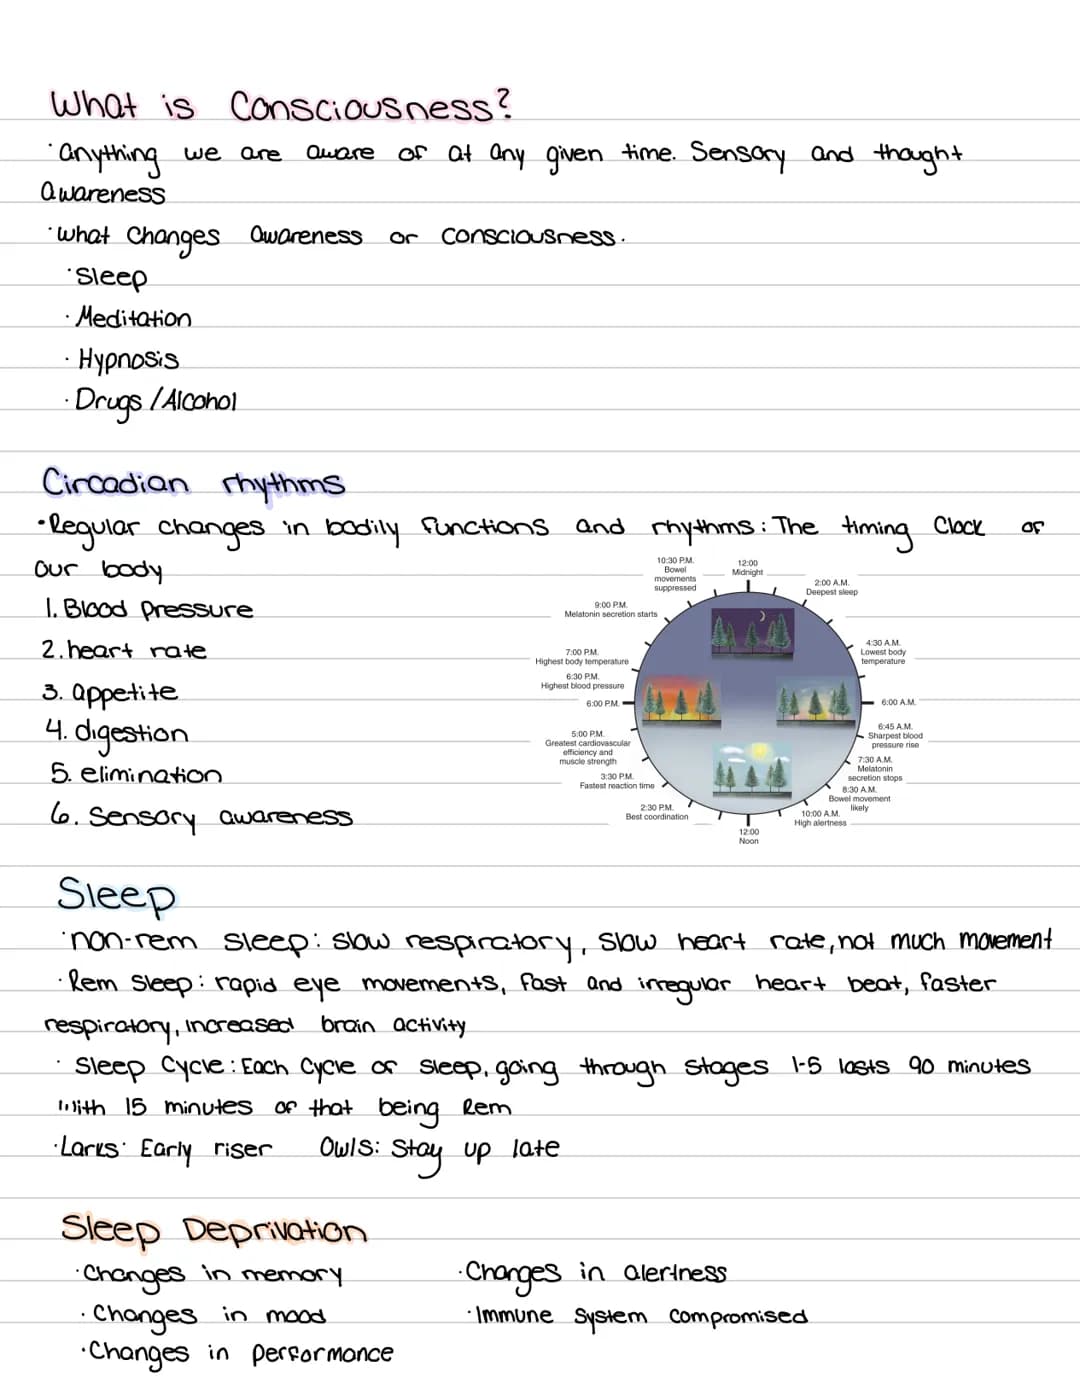 What is Consciousness?
· anything we are aware of at any given time. Sensory and thought
awareness
· what Changes awareness or consciousness.
· Sleep
· Meditation
· Hypnosis
· Drugs / Alcohol
Circadian rhythms
· Regular changes in bodily functions and rhythms: The timing Clock of
our body
1. Blood pressure
2. heart rate
3. appetite
4. digestion
5. elimination
6. Sensory awareness
12:00
Midnight
2:00 A.M.
Deepest sleep
4:30 A.M.
Lowest body
temperature
6:00 A.M.
6:45 A.M.
Sharpest blood
pressure rise
7:30 A.M.
Melatonin
secretion stops
8:30 A.M.
Bowel movement
likely
10:00 A.M.
High alertness
12:00
Noon
2:30 P.M.
Best coordination
3:30 P.M.
Fastest reaction time
5:00 P.M.
Greatest cardiovascular
efficiency and
muscle strength
6:00 P.M.
6:30 P.M.
Highest blood pressure
7:00 P.M.
Highest body temperature
9:00 P.M.
Melatonin secretion starts
10:30 P.M.
Bowel
movements
suppressed
Sleep
· non-rem sleep: slow respiratory, slow heart rate, not much movement
· Rem Sleep: rapid eye movements, fast and irregular heart beat, faster
respiratory, increased brain activity
· Sleep Cycle: Each Cycle of sleep, going through stages 1-5 lasts 90 minutes
With 15 minutes of that being Rem
· Larks: Early riser Owls: Stay up late
Sleep Deprivation
· Changes in memory · Changes in alertness
· Changes in mood · Immune System compromised
· Changes in performance